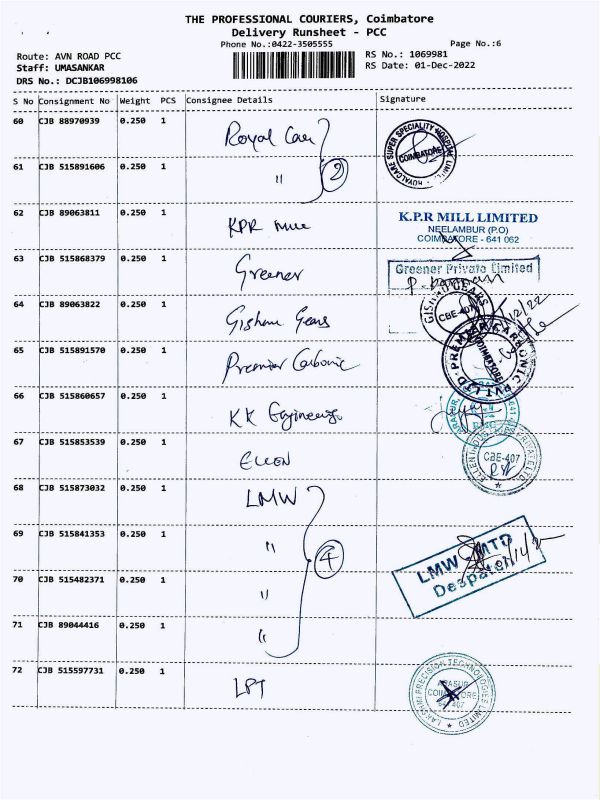 THE PROFESSIONAL COURIERS, Coimbatore
Delivery Runsheet - PCC
Phone No.:0422-3505555
Page No.:6
Route: AVN ROAD PCC
Staff: UMASANKAR
DRS No.: DCJB106998106
RS No.: 1069981
RS Date: 01-Dec-2022
S No Consignment No Weight PCS Consignee Details Signature
60 CJB 88970939 0.250 1 Royal Care
ROYALCARE SUPER SPECIALITY HOSPITAL LIMITED COIMBATORE
61 CJB 515891606 0.250 1 " 2
62 CJB 89063811 0.250 1 KPR Mill
K.P.R MILL LIMITED
NEELAMBUR (P.O)
COIMBATORE - 641 062
63 CJB 515868379 0.250 1 Greener
Greener Private Limited
64 CJB 89063822 0.250 1 Gishnu Gears
GEARS
CBE-407
65 CJB 515891570 0.250 1 Premier Carbonic
PREMIER CARBONIC PVT LTD
COIMBATORE
66 CJB 515860657 0.250 1 KK Engineering
67 CJB 515853539 0.250 1 ELLEN
ELLEN INDUSTRIES PRIVATE LTD
CBE-407
68 CJB 515873032 0.250 1 LMW
69 CJB 515841353 0.250 1 "
LMW MTD
Despatch
70 CJB 515482371 0.250 1 " 4
71 CJB 89044416 0.250 1 "
72 CJB 515597731 0.250 1 LPT
LAKSHMI PRECISION TECHNOLOGIES LIMITED
ARASUR
COIMBATORE
641 407